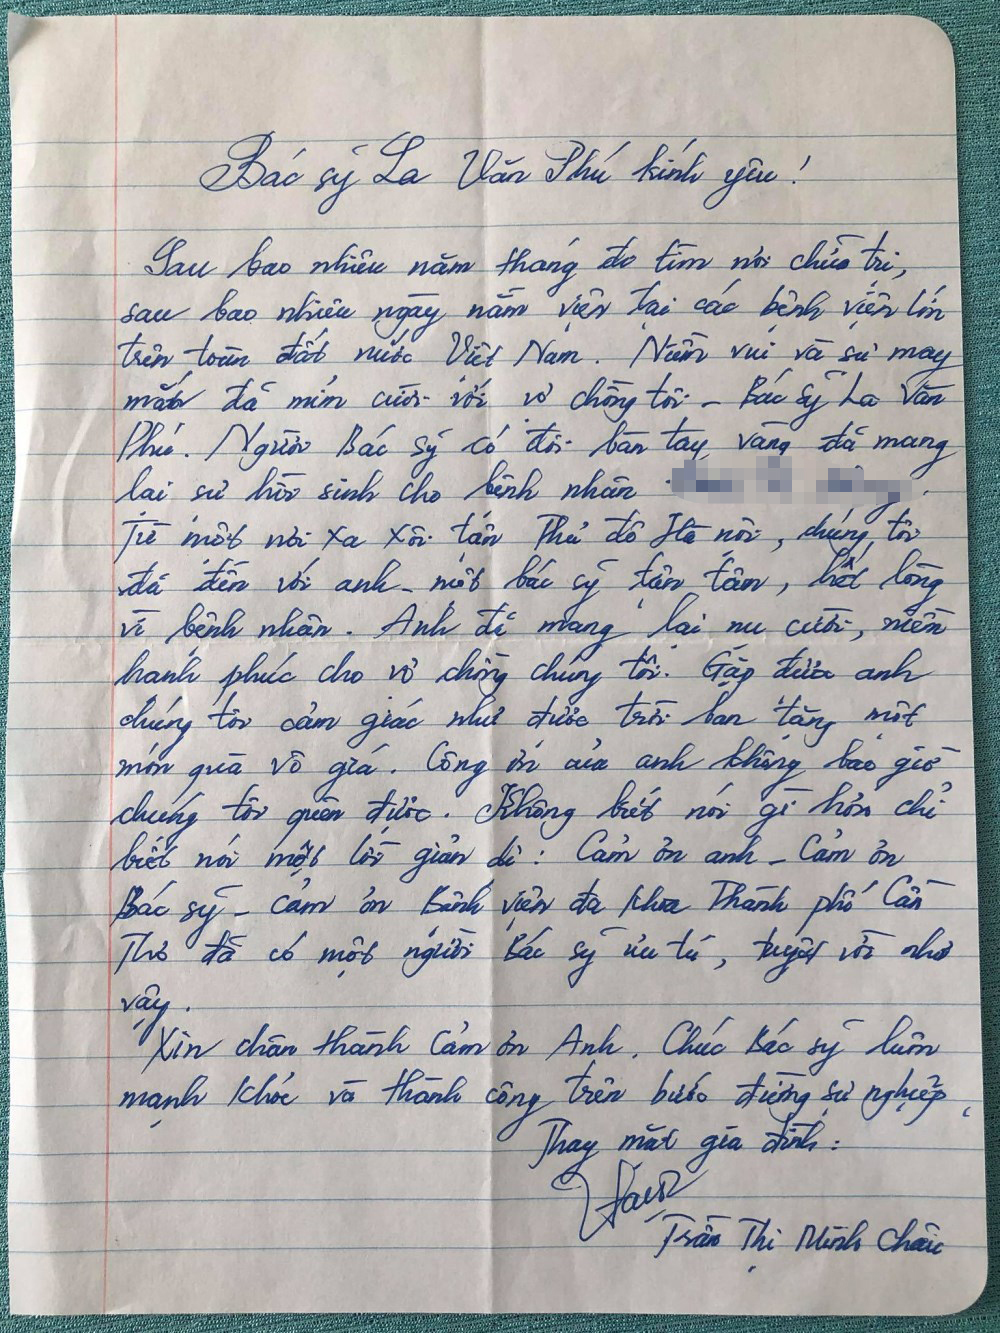 Bác sỹ La Văn Phú kính yêu!
Sau bao nhiêu năm tháng đo tìm nơi chữa trị,
sau bao nhiêu ngày nằm viện tại các bệnh viện lớn
trên toàn đất nước Việt Nam. Niềm vui và sự may
mắn đã mỉm cười với vợ chồng tôi - Bác sỹ La Văn
Phú. Người Bác sỹ có đôi bàn tay vàng đã mang
lại sự hồi sinh cho bệnh nhân
Từ một nơi xa xôi tận Thủ đô Hà nội, chúng tôi
đã đến với anh - một bác sỹ tận tâm, hết lòng
vì bệnh nhân. Anh đã mang lại nụ cười, niềm
hạnh phúc cho vợ chồng chúng tôi. Gặp được anh
chúng tôi cảm giác như được trời ban tặng một
món quà vô giá. Công ơn của anh không bao giờ
chúng tôi quên được. Không biết nói gì hơn chỉ
biết nói một lời giản dị: Cảm ơn anh - Cảm ơn
Bác sỹ - cảm ơn Bệnh viện đa khoa Thành phố Cần
Thơ đã có một người Bác sỹ ưu tú, tuyệt vời như
vậy.
Xin chân thành cảm ơn Anh. Chúc Bác sỹ luôn
mạnh khỏe và thành công trên bước đường sự nghiệp.
Thay mặt gia đình:
Trần Thị Minh Châu